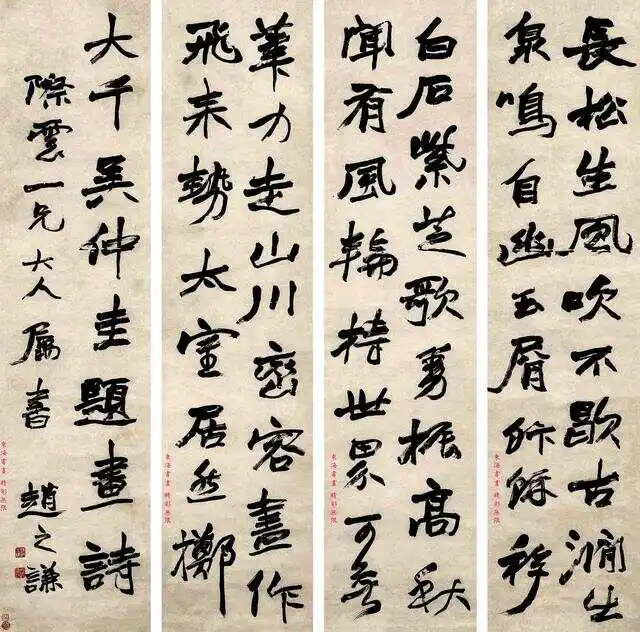 長松生風吹不歇古澗出
泉鳴自幽玉屑飰餘移
白石紫芝歌振高秋
聞有風輪持世界可無
筆力走山川巒容盡作
飛來勢太室居然擲
大千吳仲圭題畫詩
際雲一兄大人屬書 趙之謙